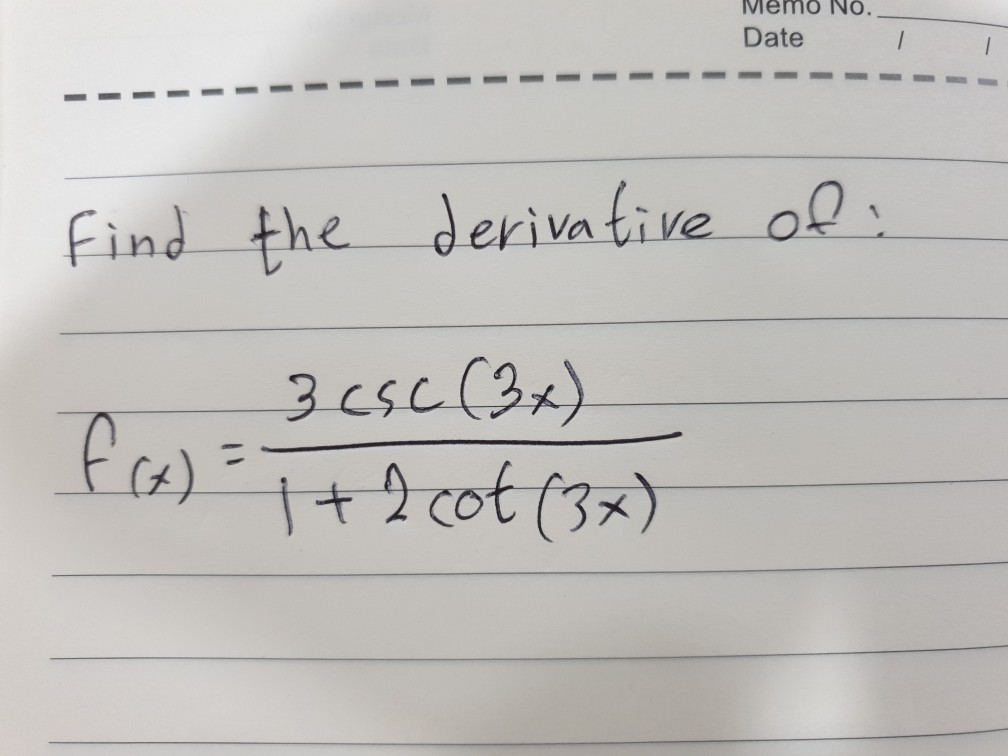 Memo No.
Date / /
Find the derivative of:
3 csc (3x)
f(x) =
1 + 2 cot (3x)